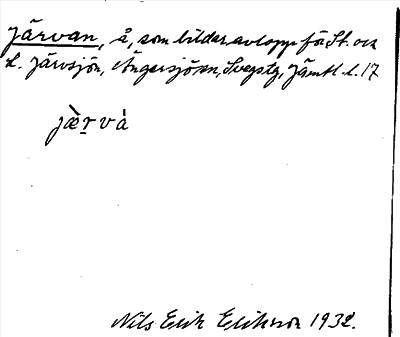 Järvan, å, som bildar avlopp för St. och
L. Järvsjön, Ängersjö sn, Svegs tg, Jämtl. l. 17
jæ̀r̠và
Nils Erik Eliksson 1932.